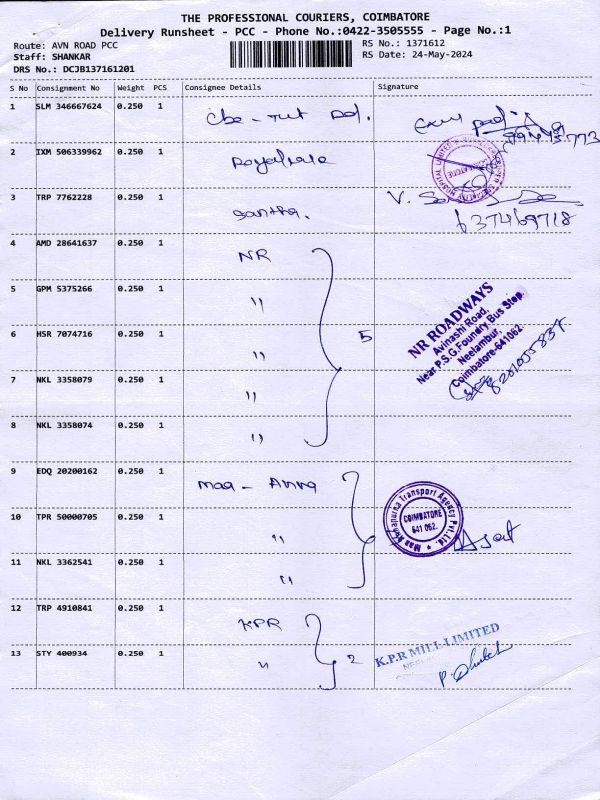 THE PROFESSIONAL COURIERS, COIMBATORE
Delivery Runsheet - PCC - Phone No.:0422-3505555 - Page No.:1
Route: AVN ROAD PCC
RS No.: 1371612
Staff: SHANKAR
RS Date: 24-May-2024
DRS No.: DCJB137161201
S No Consignment No Weight PCS Consignee Details Signature
1 SLM 346667624 0.250 1
2 IXM 506339962 0.250 1
3 TRP 7762228 0.250 1
6374169718
4 AMD 28641637 0.250 1 NR
5 GPM 5375266 0.250 1 "
6 HSR 7074716 0.250 1 " 5
7 NKL 3358079 0.250 1 "
8 NKL 3358074 0.250 1 "
NR ROADWAYS
Avinashi Road,
Near P.S.G. Foundry Bus Stop,
Neelambur,
Coimbatore-641062.
9 EDQ 20200162 0.250 1 maa - Anna
10 TPR 50000705 0.250 1 "
11 NKL 3362541 0.250 1 "
Transport Agency Pvt. Ltd.
COIMBATORE
641 062.
12 TRP 4910841 0.250 1 KPR
13 STY 400934 0.250 1 " 2
K.P.R MILL LIMITED